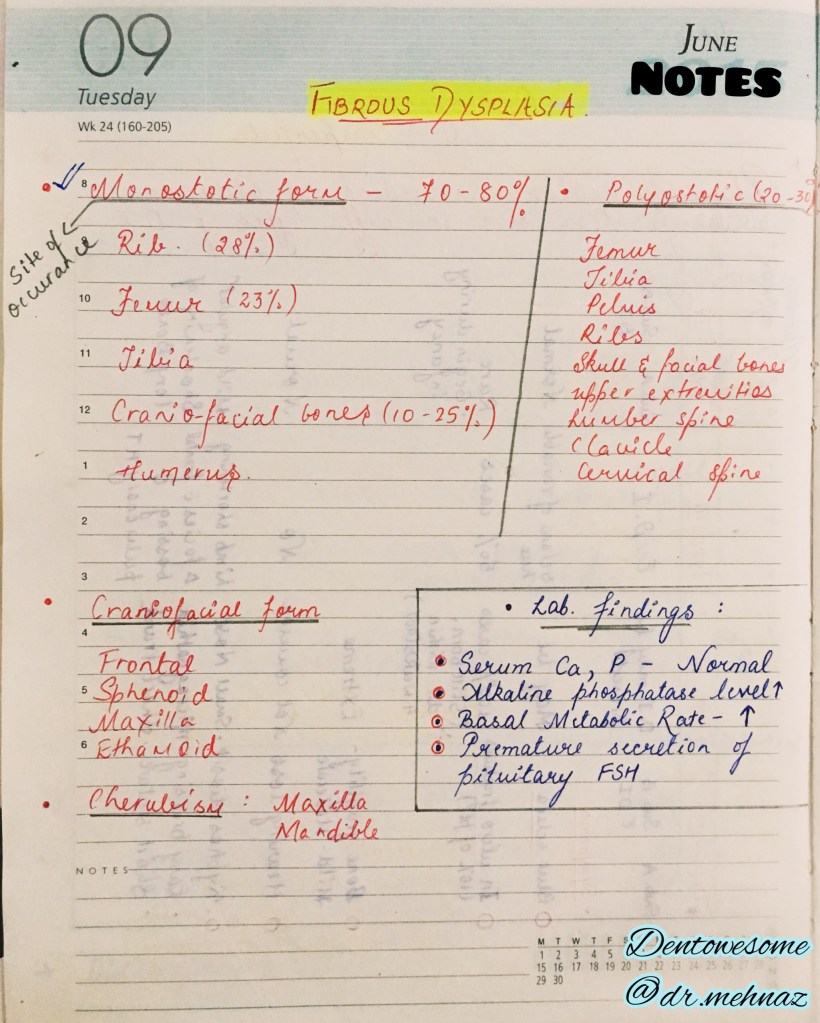 09
Tuesday
Wk 24 (160-205)
JUNE
NOTES
FIBROUS DYSPLASIA.
8
Monostotic form - 70-80%
Site of occurance
Rib. (28%)
10
Femur (23%)
11
Tibia
12
Cranio-facial bones (10-25%)
1
Humerus.
2
3
Polyostotic (20-30%
Femur
Tibia
Pelvis
Ribs
Skull & facial bones
upper extremities
Lumber spine
Clavicle
Cervical spine
Craniofacial form
4
Frontal
5
Sphenoid
Maxilla
6
Ethamoid
Cherubism : Maxilla
Mandible
Lab. findings :
Serum Ca, P - Normal
Alkaline phosphatase level ↑
Basal Metabolic Rate - ↑
Premature secretion of
pituitary FSH
NOTES
M T W T F S
1 2 3 4 5
15 16 17 18 19 20 21 22 23 24 25 26 27 28
29 30
Dentowesome
@dr.mehnaz